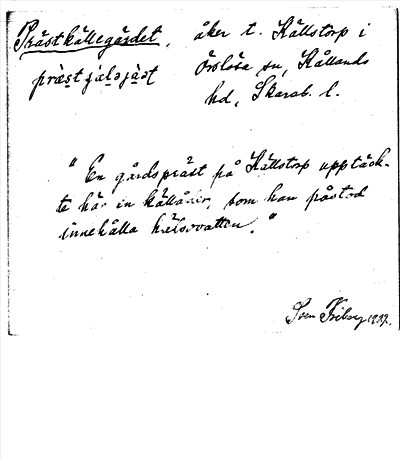 Prästkällegärdet, åker t. Källstorp i
Örslösa sn, Kållands
hd, Skarab. l.
" En gårdspräst på Källstorp upptäck-
te här en källåder, som han påstod
innehålla hälsovatten. "
Sven Friberg 1927.